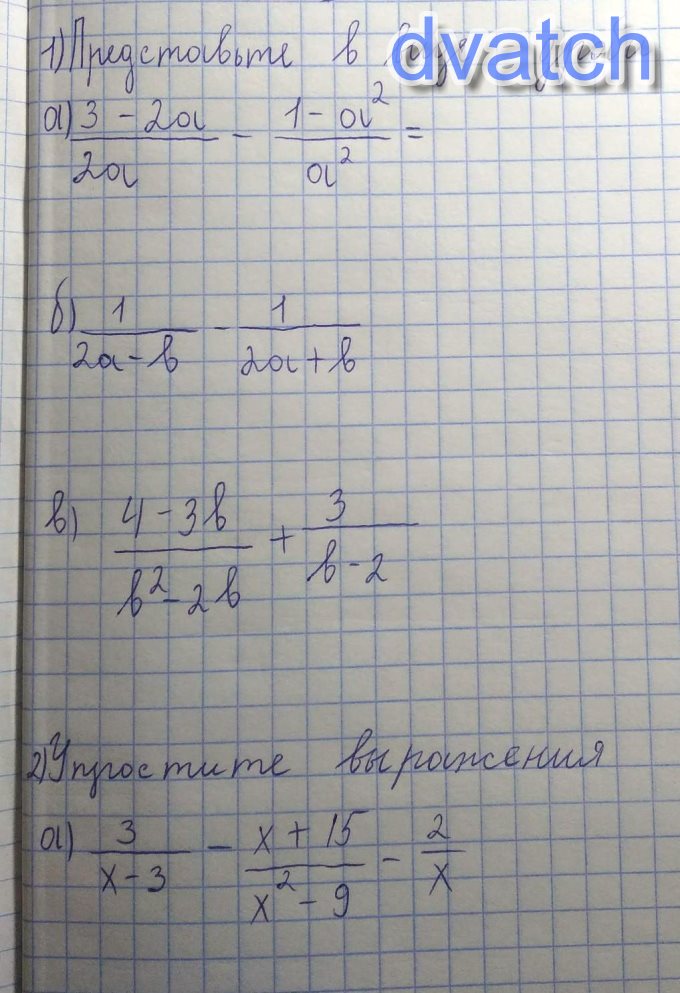 dvatch
1) Представьте в виде
а) (3 - 2a)/(2a) - (1 - a²)/(a²) =
б) 1/(2a - b) - 1/(2a + b)
в) (4 - 3b)/(b² - 2b) + 3/(b - 2)
2) Упростите выражения
а) 3/(x - 3) - (x + 15)/(x² - 9) - 2/x